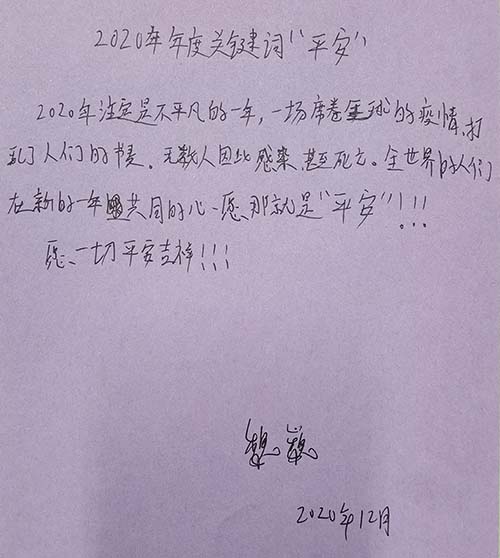 2020年年度关键词“平安”
2020年注定是不平凡的一年,一场席卷全球的疫情,打
乱了人们的节奏。无数人因此感染、甚至死亡。全世界的人们
在新的一年共同的心愿,那就是“平安”!!!
愿、一切平安吉祥!!!
2020年12月